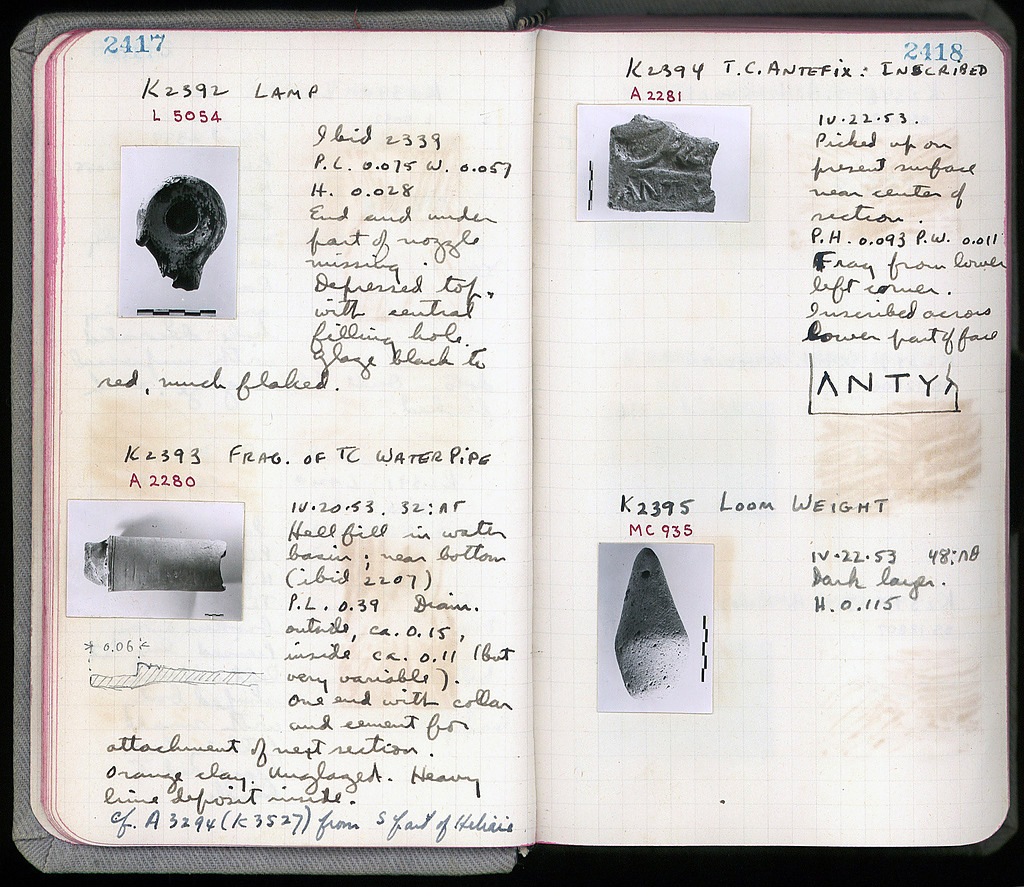 2417
K2392 LAMP
L 5054
Ibid 2339
P.L. 0.075 W. 0.057
H. 0.028
End and under
part of nozzle
missing.
Depressed top,
with central
filling hole.
Glaze black to
red, much flaked.
K2393 FRAG. OF TC WATER PIPE
A 2280
IV.20.53. 32:ΛΓ
Hell fill in water
basin; near bottom
(ibid 2207)
P.L. 0.39 Diam.
outside, ca. 0.15,
inside ca. 0.11 (but
very variable).
One end with collar
and cement for
attachment of next section.
Orange clay. Unglazed. Heavy
lime deposit inside.
cf. A 3294 (K 3527) from S part of Heliaia
0.06
2418
K2394 T.C. ANTEFIX: INSCRIBED
A 2281
IV.22.53.
Picked up on
present surface
near center of
section.
P.H. 0.093 P.W. 0.011
Frag from lower
left corner.
Inscribed across
lower part of face
ΛNTY
K2395 LOOM WEIGHT
MC 935
IV.22.53 48:ΛΘ
Dark layer.
H. 0.115